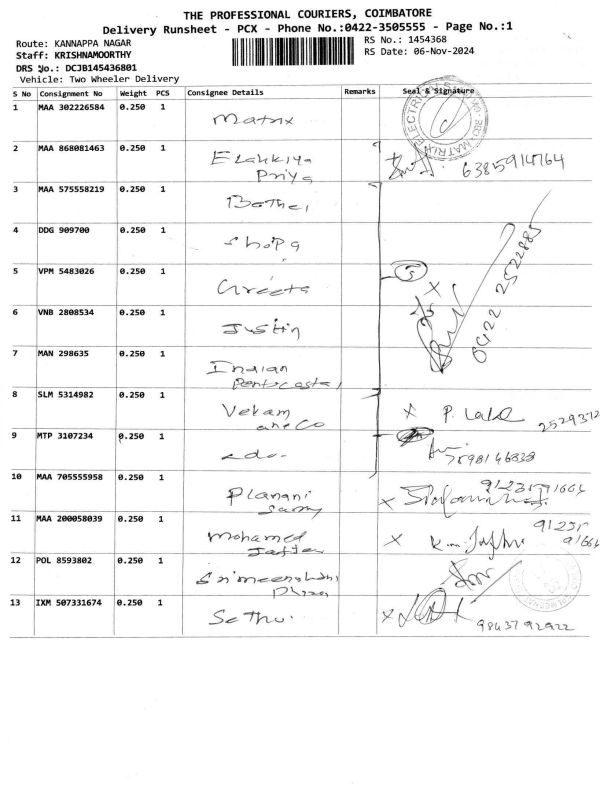 THE PROFESSIONAL COURIERS, COIMBATORE
Delivery Runsheet - PCX - Phone No.:0422-3505555 - Page No.:1
Route: KANNAPPA NAGAR
RS No.: 1454368
Staff: KRISHNAMOORTHY
RS Date: 06-Nov-2024
DRS No.: DCJB145436801
Vehicle: Two Wheeler Delivery
S No Consignment No Weight PCS Consignee Details Remarks Seal & Signature
1 MAA 302226584 0.250 1 Matrix
2 MAA 868081463 0.250 1 Elakkiya
Priya
6385914764
3 MAA 575558219 0.250 1 Bethel
4 DDG 909700 0.250 1 Shopa
5 VPM 5483026 0.250 1 Greeta
5
0422 2522885
6 VNB 2808534 0.250 1 Justin
7 MAN 298635 0.250 1 Indian
Pentecostal
8 SLM 5314982 0.250 1 Vekam
and Co
X P. Lake 2529372
9 MTP 3107234 0.250 1 -do-
7598146838
10 MAA 705555958 0.250 1 Planani
Samy
X 9123591664
11 MAA 200058039 0.250 1 Mohamed
Jaffer
X 91235
91664
12 POL 8593802 0.250 1 Srimeenakshi
13 IXM 507331674 0.250 1 Sethu.
X 9843792922